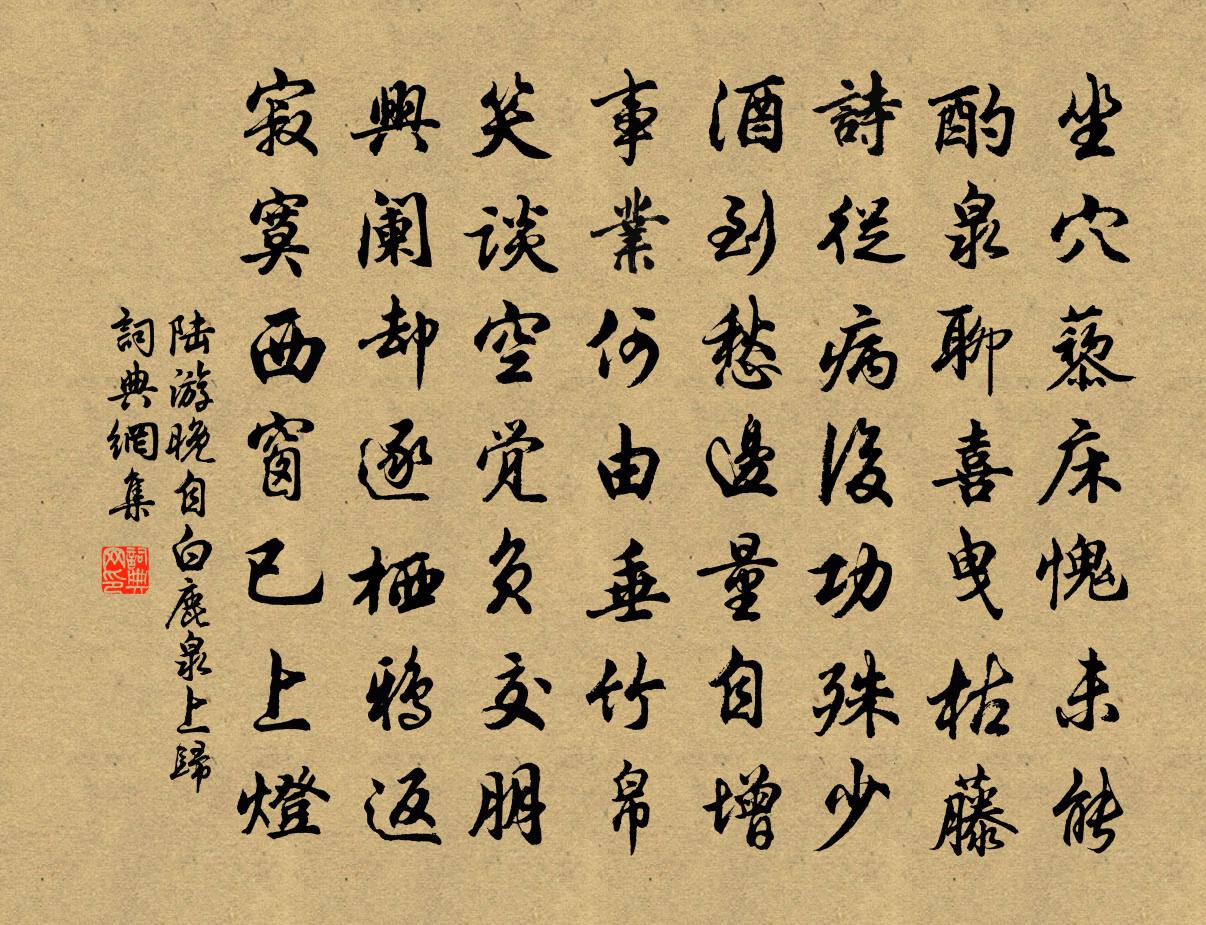 坐穴藜床愧未能
酌泉聊喜曳枯藤
詩從病後功殊少
酒到愁邊量自增
事業何由垂竹帛
笑談空覚負交朋
興闌却逐栖鴉返
寂寞西窗已上燈
陆游晚自白鹿泉上歸
詞典網集
詞典網印